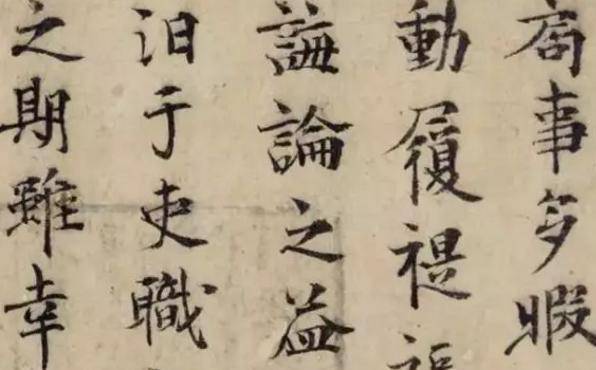 局事多暇
動履禔福
誨論之益
汩于吏職
之期雖幸